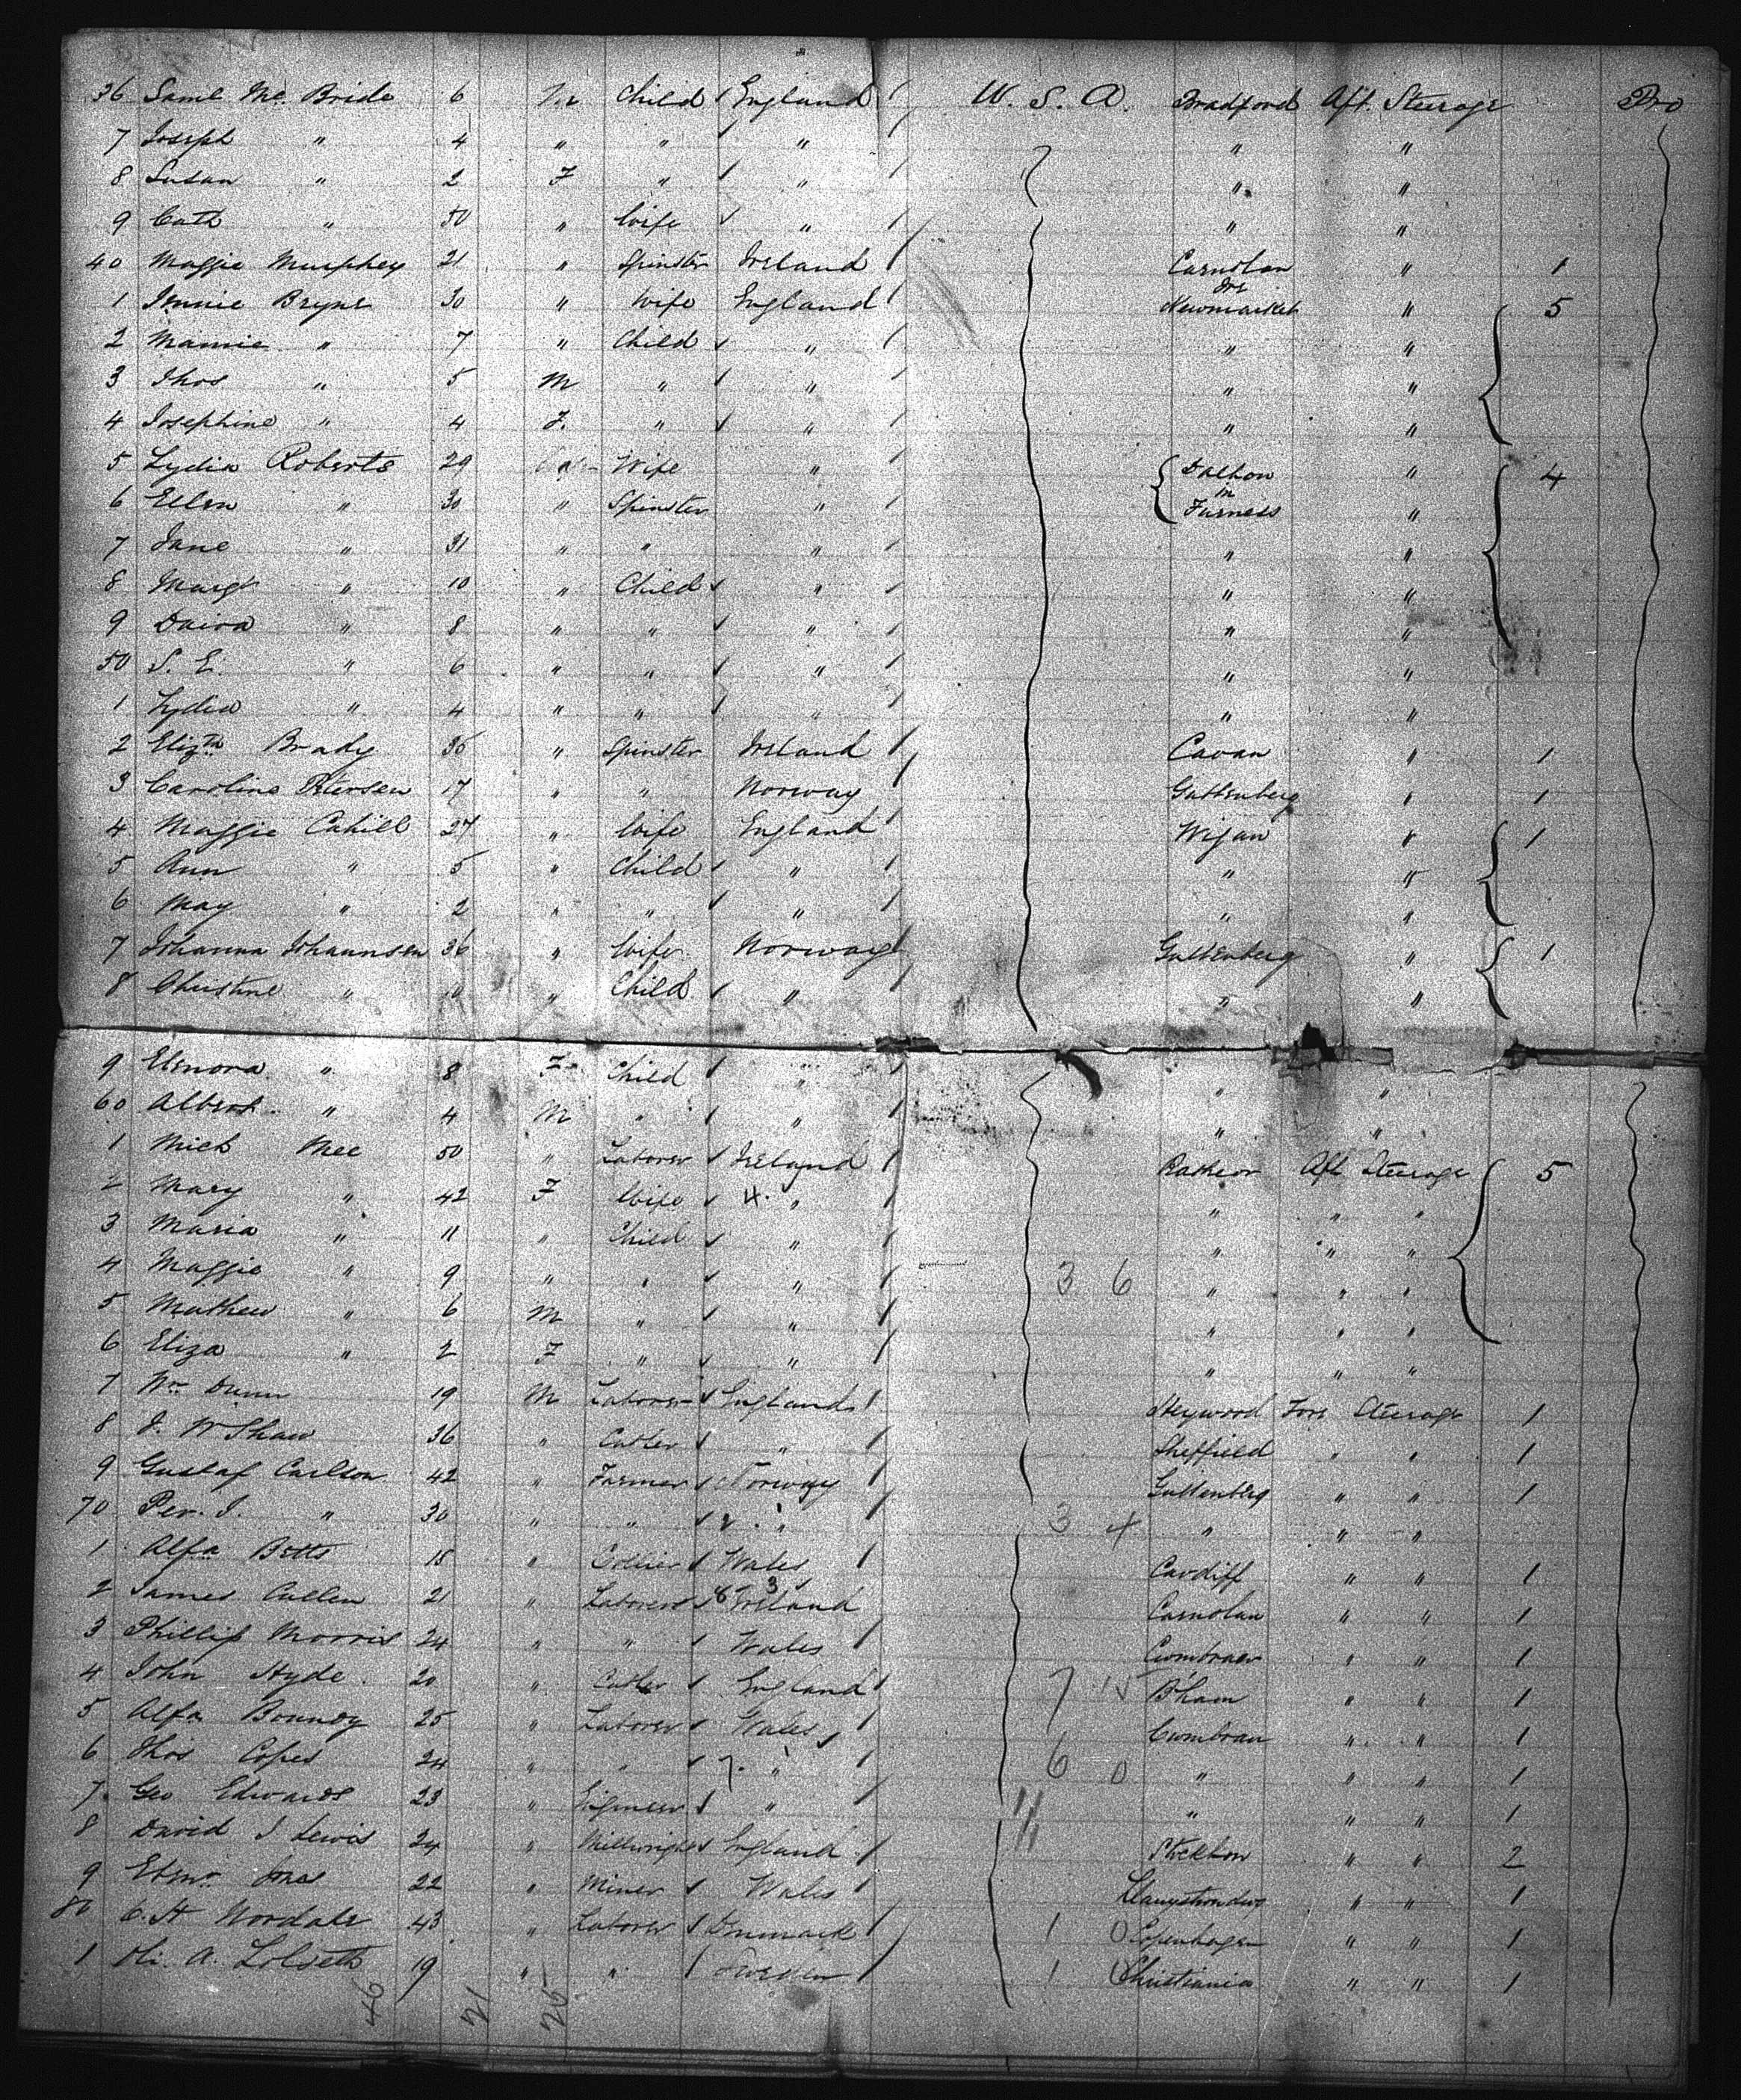 36 Saml Mc. Bride 6 M Child England U. S. A. Bradford Aft. Steerage Pro
7 Joseph " 4 " " " " "
8 Susan " 2 F " " " "
9 Cath " 30 " Wife " " "
40 Maggie Murphey 21 " Spinster Ireland " 1
1 Jennie Bryne 30 " Wife England Newmarket " 5
2 Mamie " 7 " Child " " "
3 Thos " 5 M " " " "
4 Josephine " 4 F. " " " "
5 Lydia Roberts 29 Wife " Dalton "  4
in
6 Ellen " 30 " Spinster " Furness "
7 Jane " 31 " " " " "
8 Margt " 10 " Child " " "
9 " 8 " " " " "
50 S. E. " 6 " " " " "
1 Lydia " 4 " " " " "
2 Elizth Brady 35 " Spinster Ireland Cavan " 1
3 Caroline Petersen 17 " " Norway Guttenberg " 1
4 Maggie Cahill 27 " Wife England Wigan " 1
5 Ann " 5 " Child " " "
6 May " 2 " " " " "
7 Johanna Johannsen 36 " Wife Norway Guttenberg " 1
8 Christine " " Child " " "
9 Elenora " 8 F Child " " "
60 Albert " 4 M " " " "
1 Mich Mee 50 " Laborer Ireland Aft Steerage 5
2 Mary " 42 F Wife 4. " " " "
3 Maria " 11 " Child " " " "
4 Maggie " 9 " " " 3 6 " " "
5 Mathew " 6 M " " " " "
6 Eliza " 2 F " " " " "
7 Wm Dunn 19 M Laborer England Heywood Fore Steerage 1
8 J. W Shaw 36 " Cutler " Sheffield " " 1
9 Gustaf Carlson 42 " Farmer Norway Guttenberg " " 1
70 Per. J. " 30 " " 2. " 3 4 " " "
1 Alfd Betts 18 " Collier Wales Cardiff " " 1
2 James Cullen 21 " Laborer Ireland " " 1
3 Phillip Morris 24 " " Wales " " 1
4 John Hyde 20 " Cutler England 7 15 B'ham " " 1
5 Alfd 25 " Laborer Wales Cwmbran " " 1
6 Thos Copes 24 " " 7. " 6 0 " " " 1
7 Geo Edwards 23 " Engineer " " " " 1
8 David J Lewis 24 " Millwright England Stockton " " 2
9 Ebenr Jones 22 " Miner Wales " " 1
80 C. H Nordale 43 " Laborer Denmark 1 0 Copenhagen " " 1
1 A. 19 " " Sweden 1 0 Christiania " " 1
46 21 25